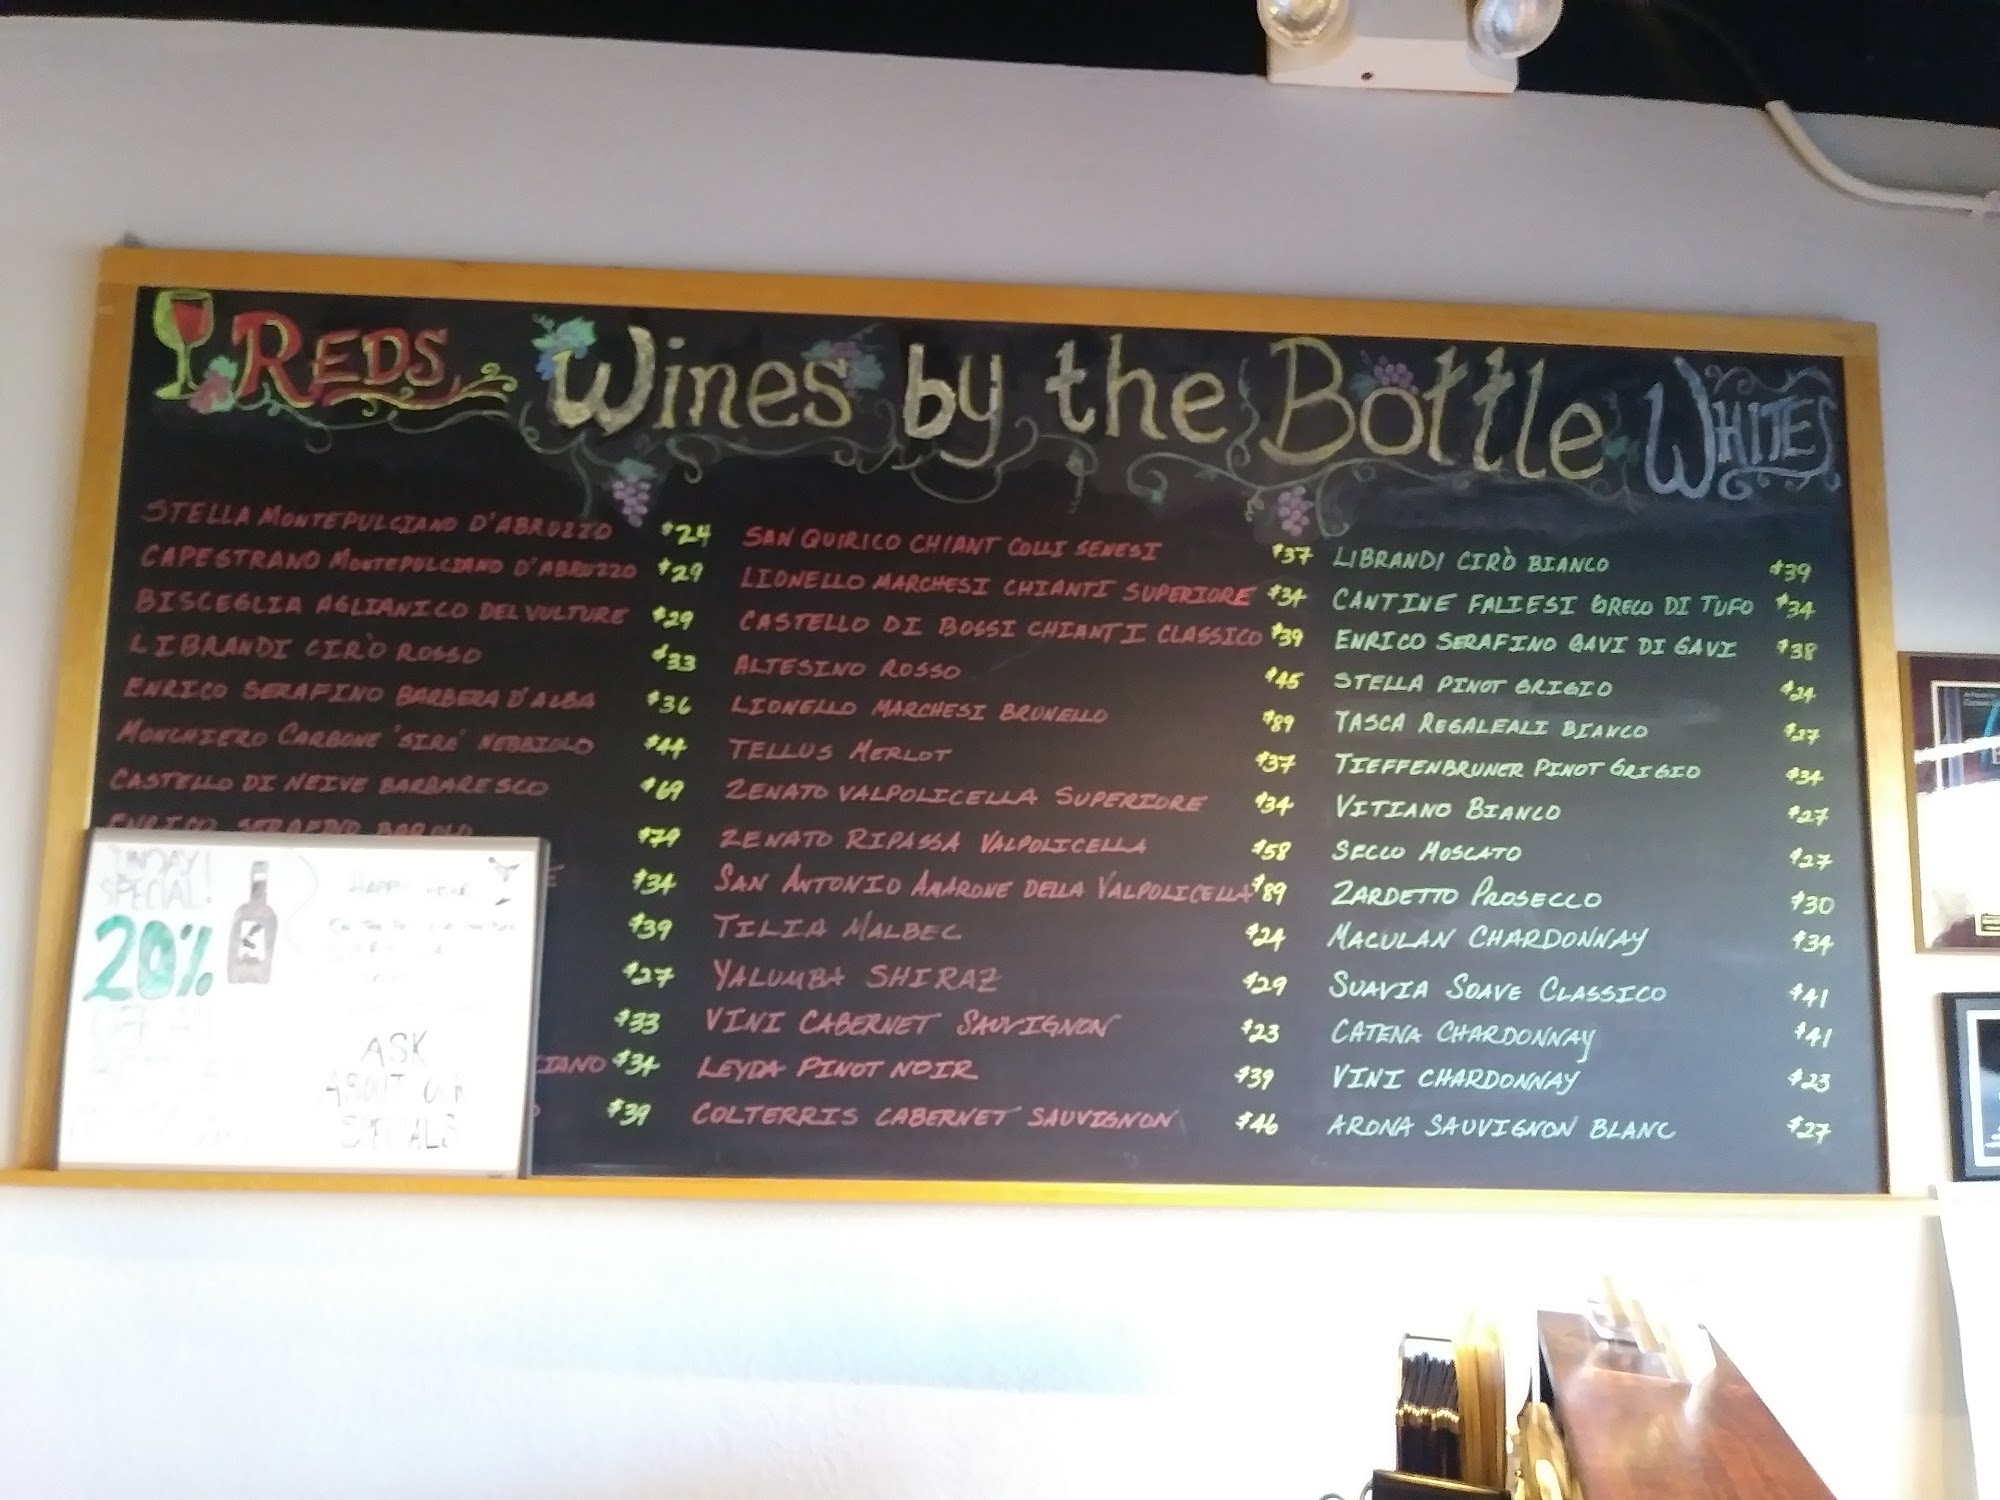 REDS Wines by the Bottle WHITES
STELLA MONTEPULCIANO D'ABRUZZO $24
CAPESTRANO MONTEPULCIANO D'ABRUZZO $29
BISCEGLIA AGLIANICO DEL VULTURE $29
LIBRANDI CIRÒ ROSSO $33
ENRICO SERAFINO BARBERA D'ALBA $36
MONCHIERO CARBONE 'SIRA' NEBBIOLO $44
CASTELLO DI NEIVE BARBARESCO $69
ENRICO SERAFINO BAROLO $79
$34
$39
$27
$33
$34
$39
SAN QUIRICO CHIANT COLLI SENESI $37
LIONELLO MARCHESI CHIANTI SUPERIORE $34
CASTELLO DI BOSSI CHIANTI CLASSICO $39
ALTESINO ROSSO $45
LIONELLO MARCHESI BRUNELLO $89
TELLUS MERLOT $37
ZENATO VALPOLICELLA SUPERIORE $34
ZENATO RIPASSA VALPOLICELLA $58
SAN ANTONIO AMARONE DELLA VALPOLICELLA $89
TILIA MALBEC $24
YALUMBA SHIRAZ $29
VINI CABERNET SAUVIGNON $23
LEYDA PINOT NOIR $39
COLTERRIS CABERNET SAUVIGNON $46
LIBRANDI CIRÒ BIANCO $39
CANTINE FALIESI GRECO DI TUFO $34
ENRICO SERAFINO GAVI DI GAVI $38
STELLA PINOT GRIGIO $24
TASCA REGALEALI BIANCO $27
TIEFFENBRUNER PINOT GRIGIO $34
VITIANO BIANCO $27
SECCO MOSCATO $27
ZARDETTO PROSECCO $30
MACULAN CHARDONNAY $34
SUAVIA SOAVE CLASSICO $41
CATENA CHARDONNAY $41
VINI CHARDONNAY $23
ARONA SAUVIGNON BLANC $27
SUNDAY!
SPECIAL!
20%
OFF ALL
BOTTLES
HAPPY HOUR
ASK
ABOUT OUR
SPECIALS